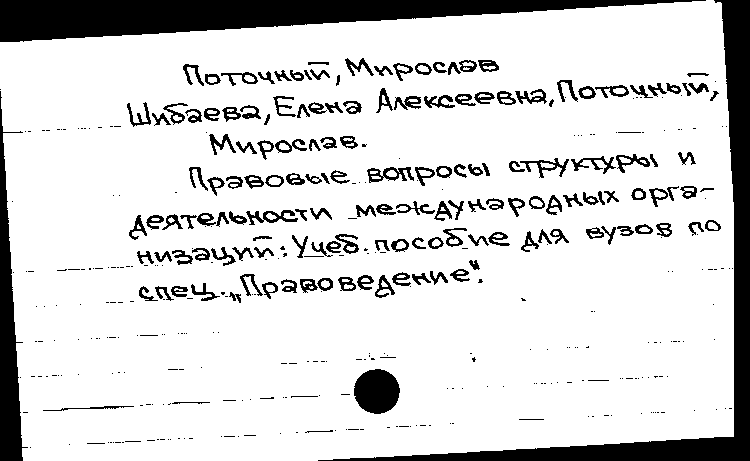 Поточный, Мирослав
Шибаева, Елена Алексеевна, Поточный,
Мирослав.
Правовые вопросы структуры и
деятельности международных орга-
низаций: Учеб. пособие для вузов по
спец. „Правоведение".